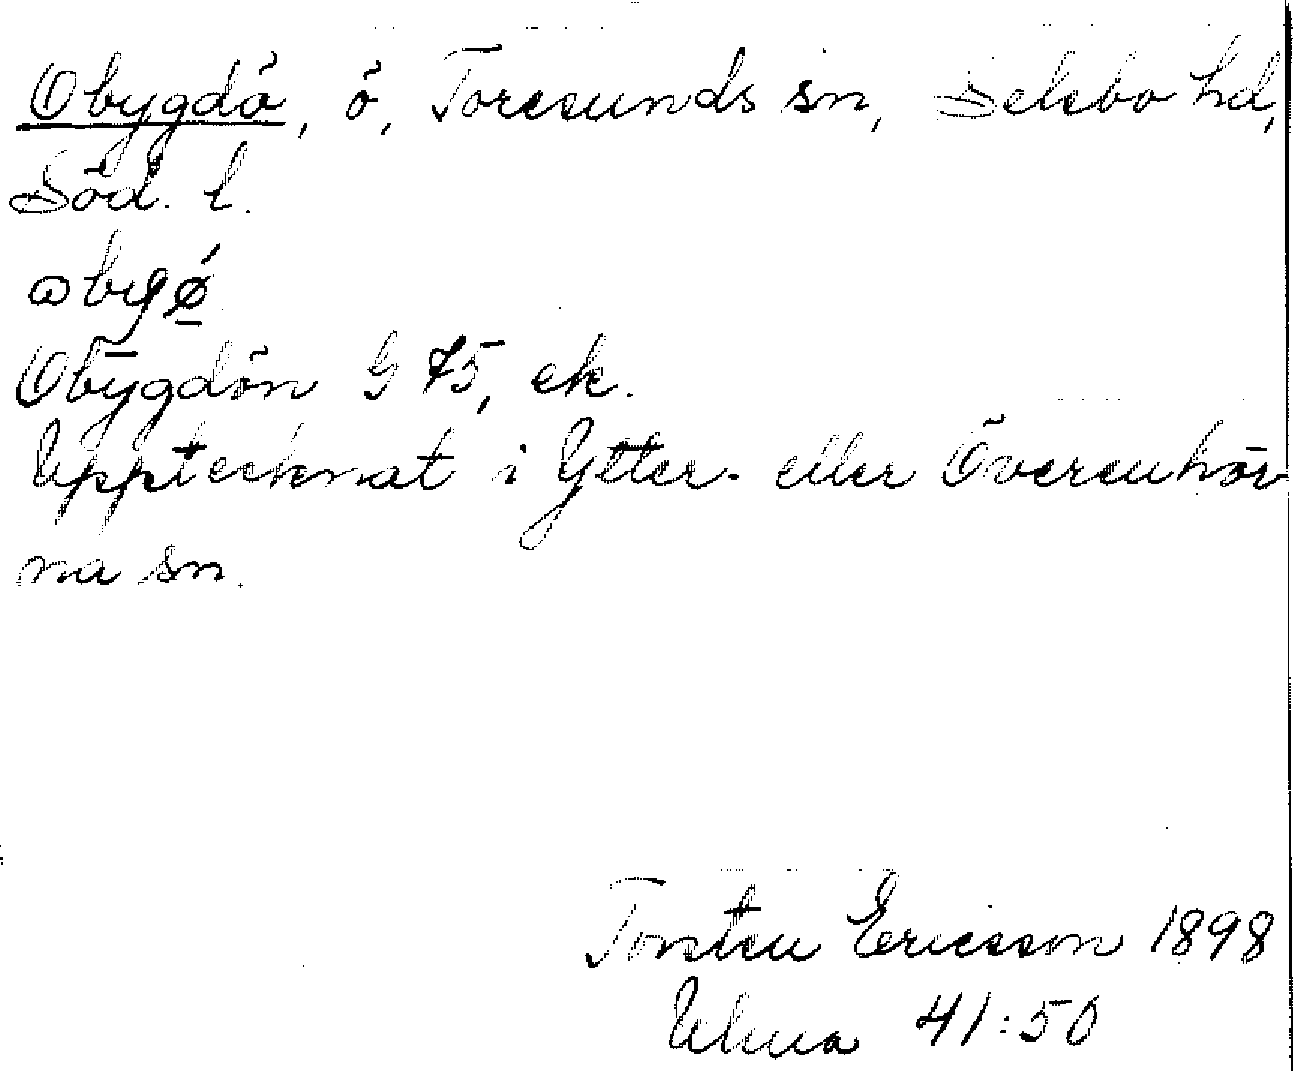 Obygdö, ö, Toresunds sn, Selebo hd,
Söd. l.
obygǿ̲
Obygdön G 75, ek.
Upptecknat i Ytter- eller Överenhör
na sn.
Torsten Ericsson 1898
Ulma 41:50